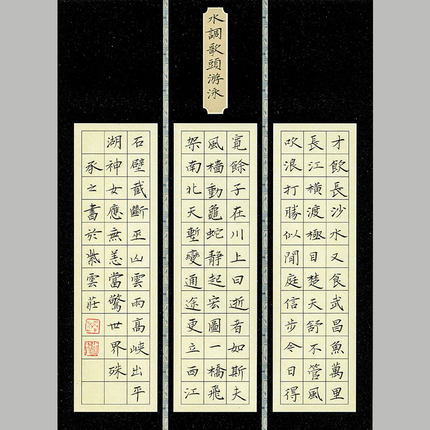 水調歌頭游泳
才飲長沙水又食武昌魚萬里
長江橫渡極目楚天舒不管風
吹浪打勝似閒庭信步今日得
寬餘子在川上曰逝者如斯夫
風檣動龜蛇靜起宏圖一橋飛
架南北天塹變通途更立西江
石壁截斷巫山雲雨高峽出平
湖神女應無恙當驚世界殊
承之書於紫雲莊